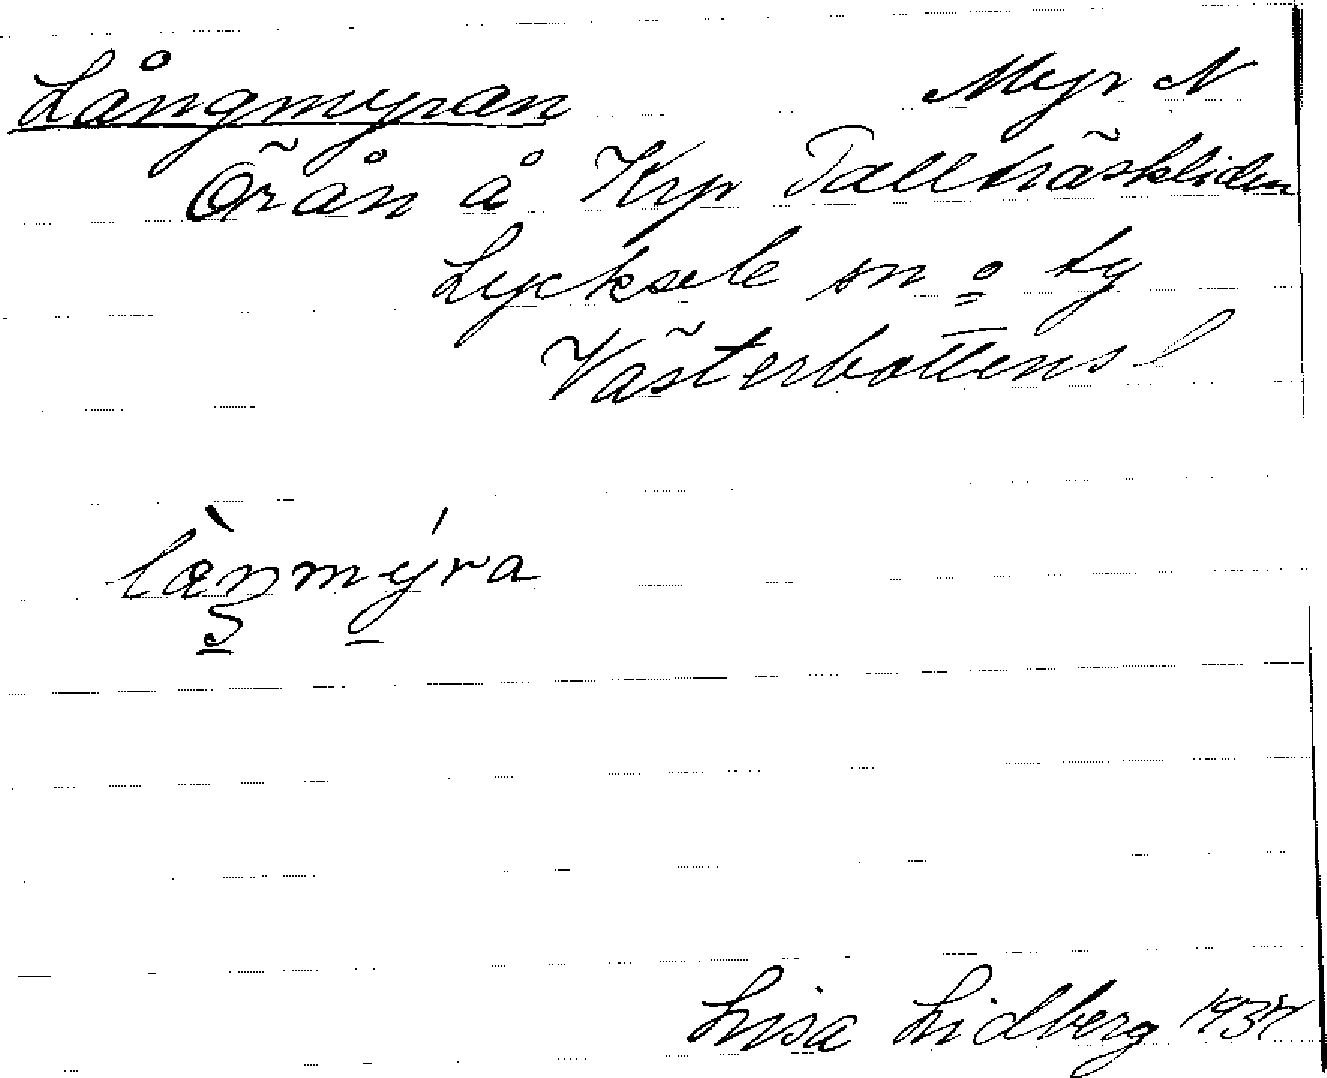 Långmyran Myr N
Örån å Krp Tallträskliden
Lycksele sn o ty
Västerbottens l
Lisa Lidberg